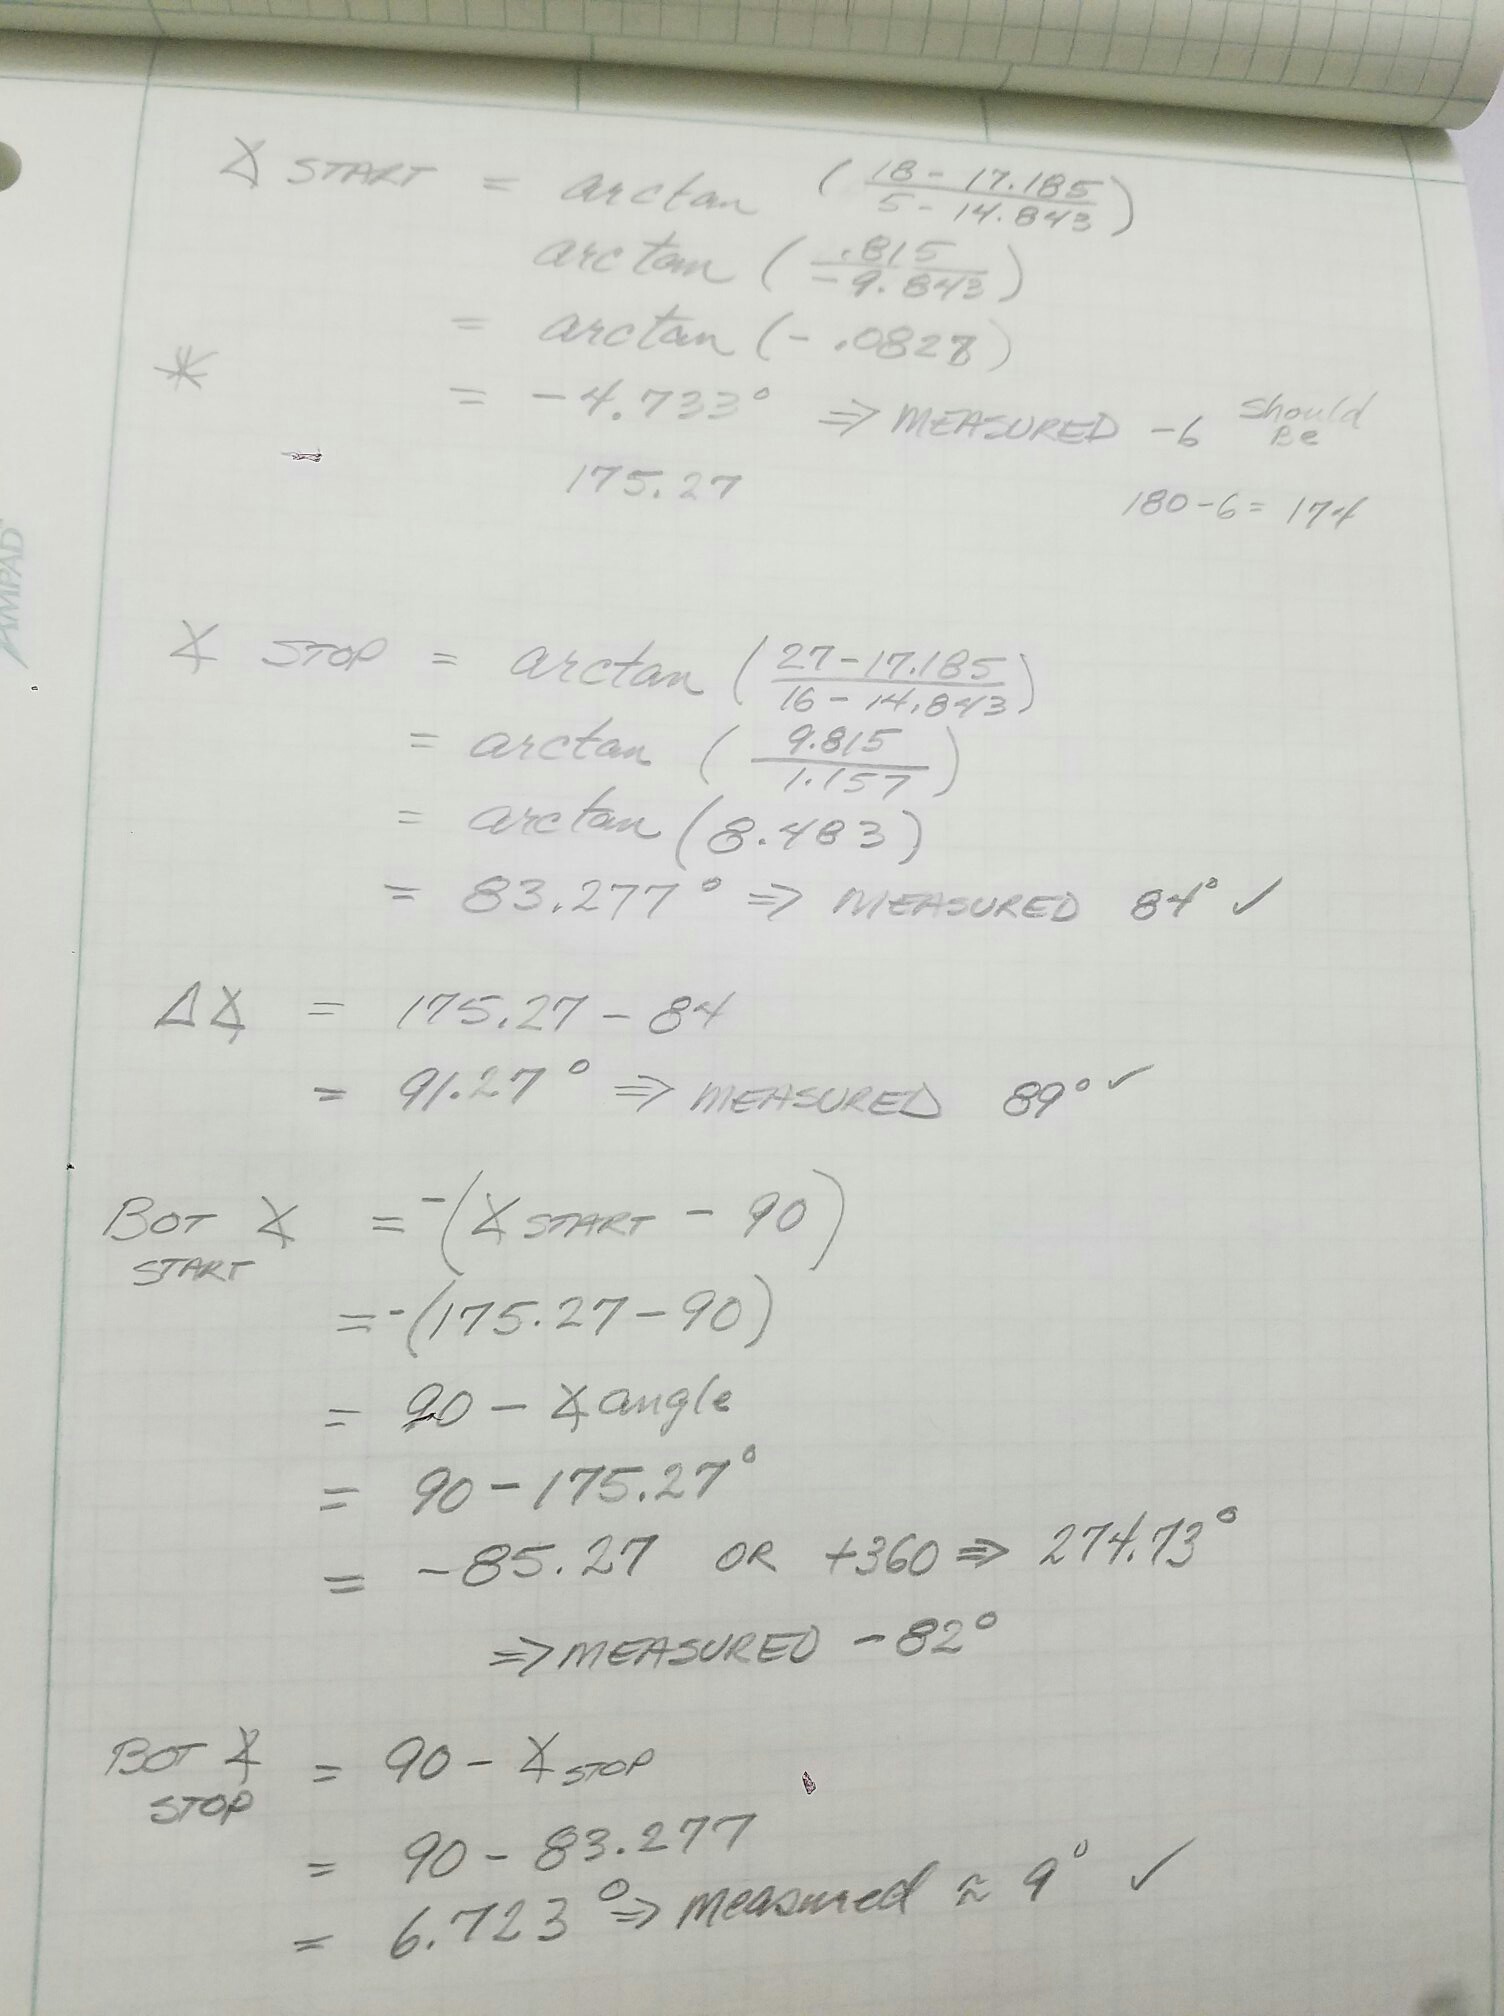 ∡ START = arctan (18 - 17.185 / 5 - 14.843)
arctan (.815 / -9.843)
= arctan (- .0828)
* = -4.733° ⇒ MEASURED -6 should Be
175.27 180-6 = 174
AMPAD
∡ STOP = arctan (27-17.185 / 16 - 14.843)
= arctan (9.815 / 1.157)
= arctan (8.483)
= 83.277° ⇒ MEASURED 84° ✓
Δ∡ = 175.27 - 84
= 91.27° ⇒ MEASURED 89° ✓
BOT ∡ START = -(∡ START - 90)
= -(175.27-90)
= 90 - ∡ angle
= 90 - 175.27°
= -85.27 OR +360 ⇒ 274.73°
⇒ MEASURED -82°
BOT ∡ STOP = 90 - ∡ STOP
= 90 - 83.277
= 6.723° ⇒ measured ≈ 9° ✓